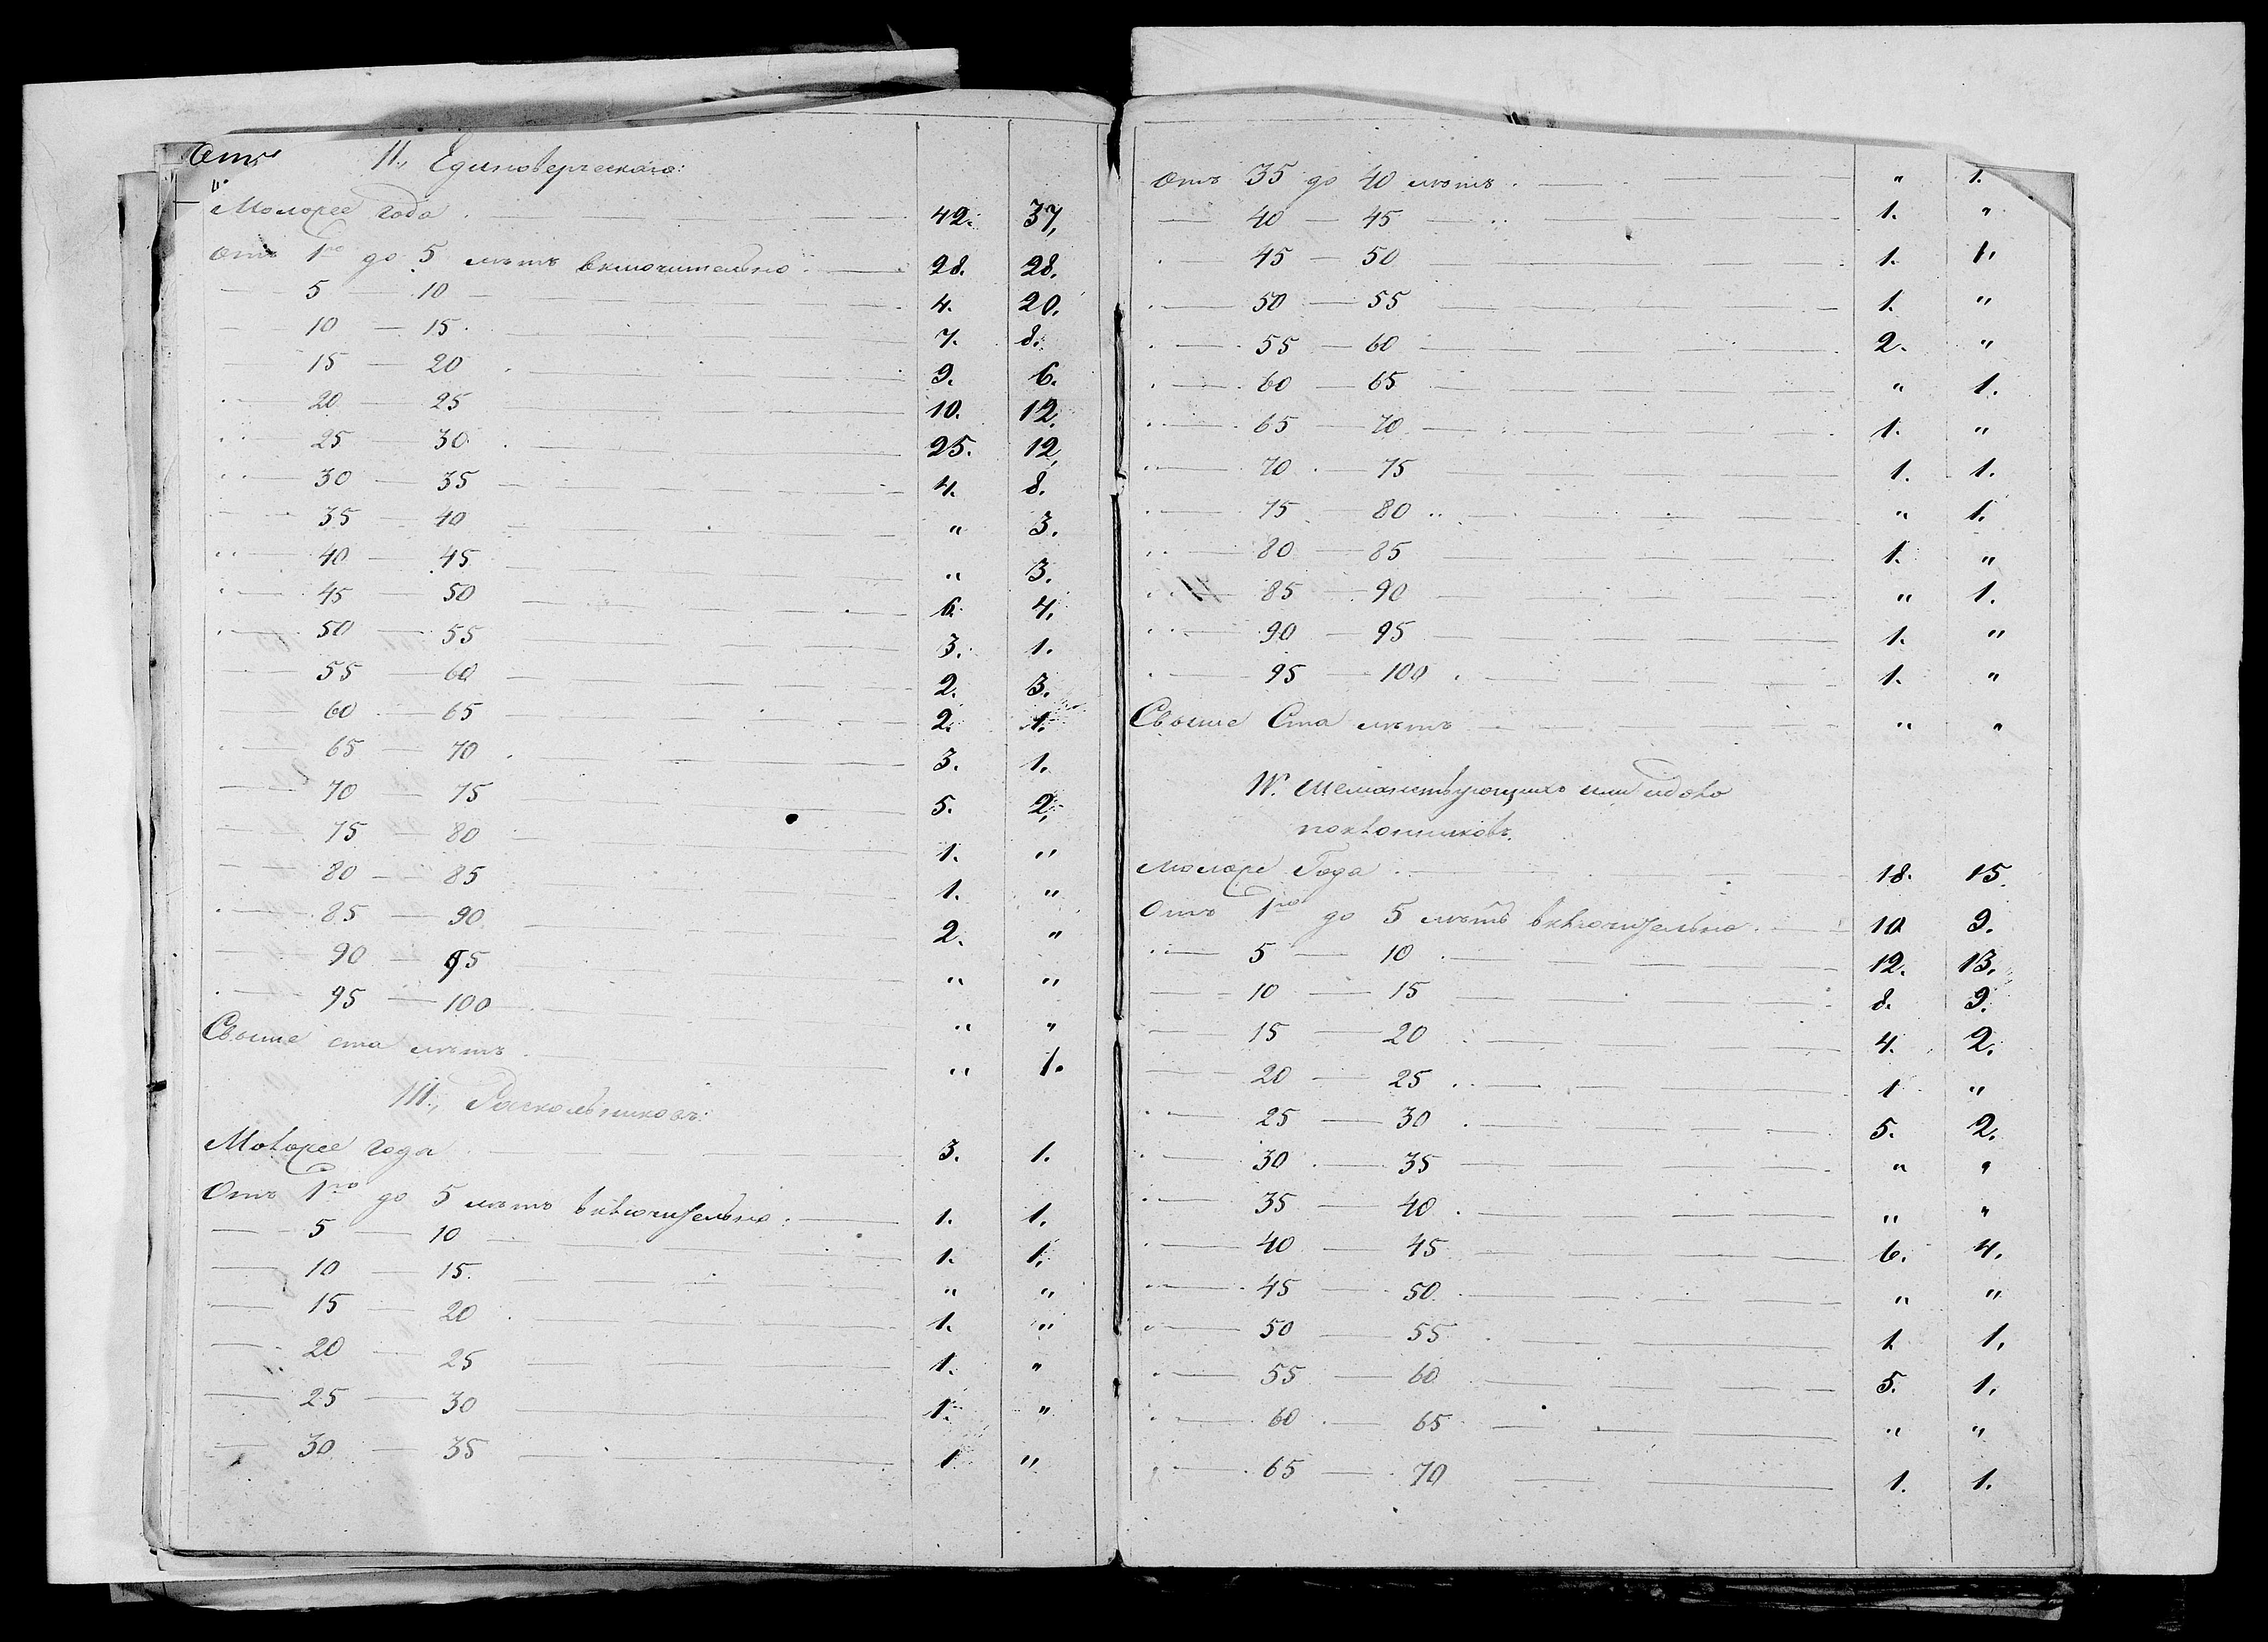 Отъ
II., Единоверческаго:
Моложе года . — 42. 37.
Отъ 1го до 5 лѣтъ включительно . — 28. 28.
— 5 — 10 — 4. 20.
— 10 — 15. — 7. 8.
— 15 — 20 . — 9. 6.
— 20 — 25 — 10. 12.
— 25 — 30 . — 25. 12.
— 30 — 35 — 4. 8.
— 35 — 40 — " 3.
— 40 — 45 — " 3.
— 45 — 50 — 6. 4.
— 50 — 55 — 3. 1.
— 55 — 60 — 2. 3.
— 60 — 65 — 2. 1.
— 65 — 70 . — 3. 1.
— 70 — 75 — 5. 2.
— 75 — 80 — 1. "
— 80 — 85 — 1. "
— 85 — 90 — 2. "
— 90 — 95 — " "
— 95 — 100 — " "
Свыше ста лѣтъ . — " 1.
III., Раскольниковъ:
Моложе года — 3. 1.
Отъ 1го до 5 лѣтъ включительно . — 1. 1.
— 5 — 10 — 1. 1.
— 10 — 15. — " "
— 15 — 20 . — 1. "
— 20 — 25 — 1. "
— 25 — 30 — 1. "
— 30 — 35 — 1 "
Отъ 35 до 40 лѣтъ . — " 1.
— 40 — 45 — 1. "
— 45 — 50 — 1. 1.
— 50 — 55 — 1. "
— 55 — 60 — 2. "
— 60 — 65 — " 1.
— 65 — 70 — 1. "
— 70 — 75 — 1. 1.
— 75 — 80 — " 1.
— 80 — 85 — 1. "
— 85 — 90 — " 1.
— 90 — 95 — 1. "
— 95 — 100 . — 1. "
Свыше Ста лѣтъ — " "
IV. Шеманствующихъ или идоло
поклонниковъ.
моложе Года . — 18. 15.
Отъ 1го до 5 лѣтъ включительно . — 10 9.
— 5 — 10 . — 12. 13.
— 10 — 15 — 8. 9.
— 15 — 20 — 4. 2.
— 20 — 25 — 1 "
— 25 — 30 . — 5. 2.
— 30 — 35 — " "
— 35 — 40 . — " "
— 40 — 45 — 6. 4.
— 45 — 50 . — " "
— 50 — 55 . — 1 1.
— 55 — 60 — 5. 1.
— 60 — 65 — " "
— 65 — 70 — 1. 1.